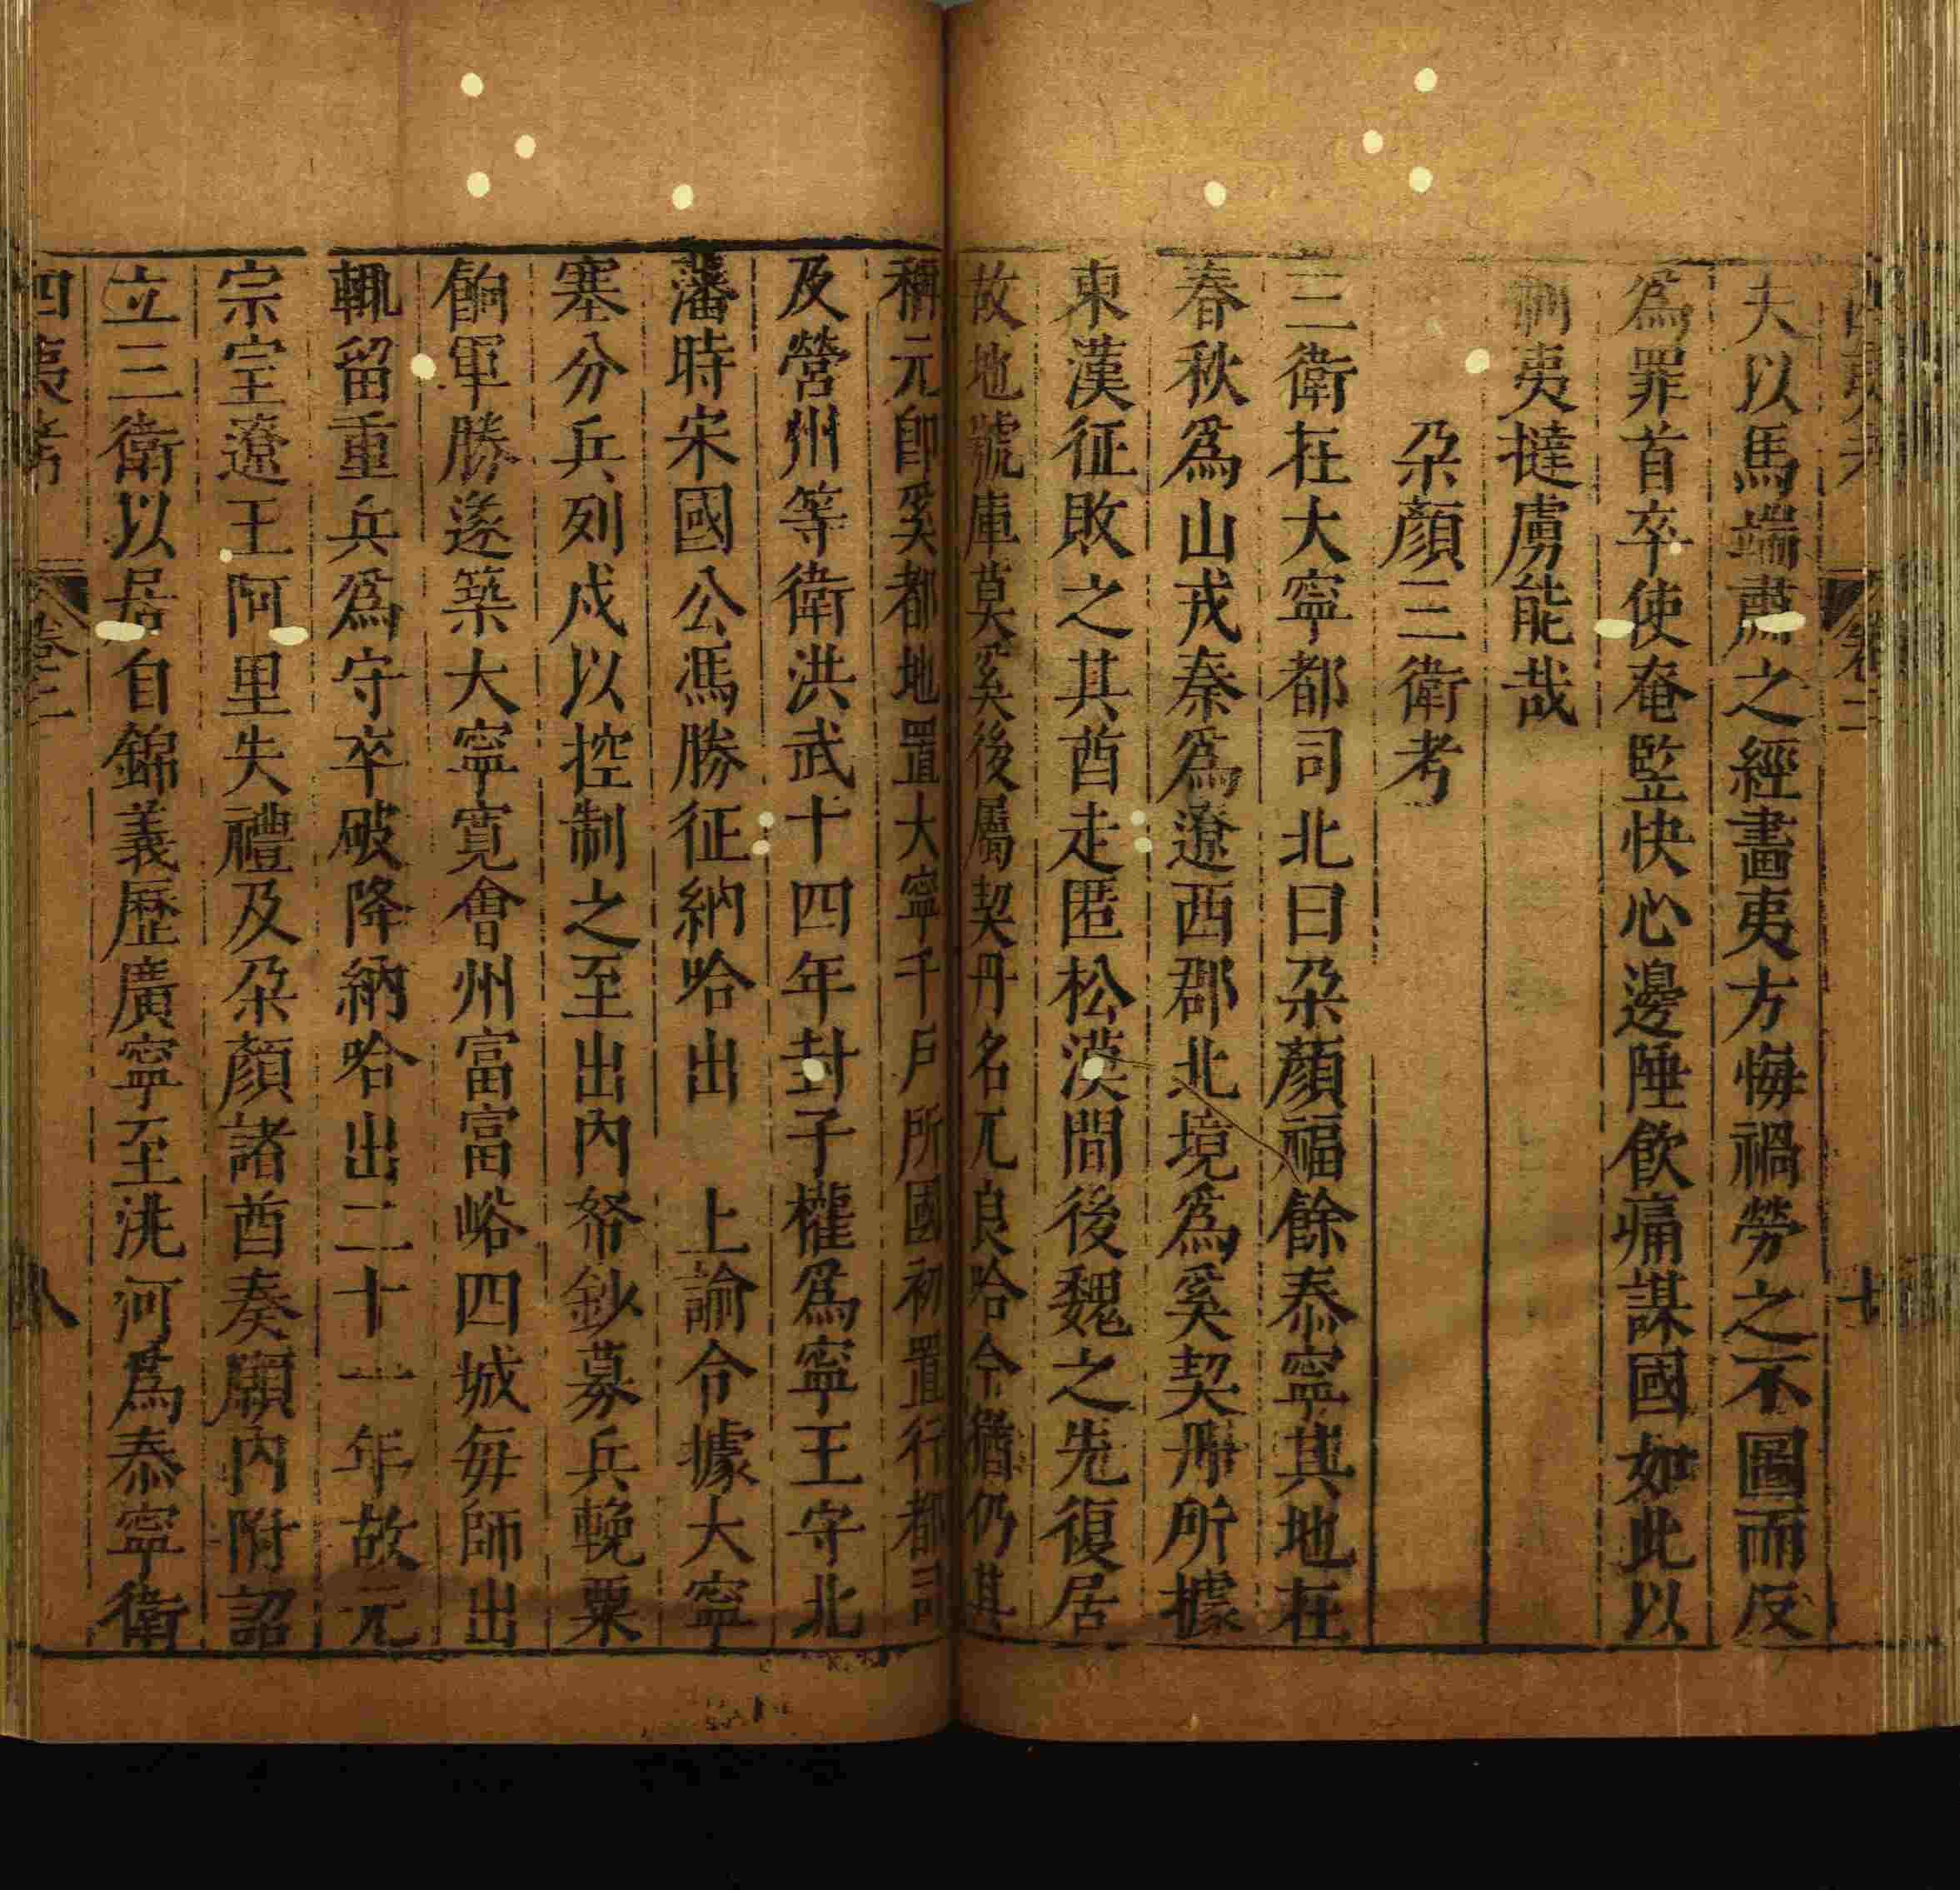 夫以馬端肅之經畫夷方悔禍勞之不圖而反
爲罪首卒使奄監快心邊陲飲痛謀國如此以
制夷撻虜能哉
朶顏三衛考
三衛在大寧都司北曰朶顏福餘泰寧其地在
春秋爲山戎秦爲遼西郡北境爲奚契丹所據
東漢征敗之其酋走匿松漠間後魏之先復居
故地號庫莫奚後屬契丹名兀良哈今猶仍其
稱元卽奚都地置大寧千戶所國初置行都司
及營州等衛洪武十四年封子權爲寧王守北
藩時宋國公馮勝征納哈出 上諭令據大寧
塞分兵列戍以控制之至出內帑鈔募兵輓粟
餉軍勝遂築大寧寬會州富富峪四城每師出
輒留重兵爲守卒破降納哈出二十一年故元
宗室遼王阿里失禮及朶顏諸酋奏願內附詔
立三衛以居自錦義歷廣寧至洮河爲泰寧衛
四夷考 卷二 八